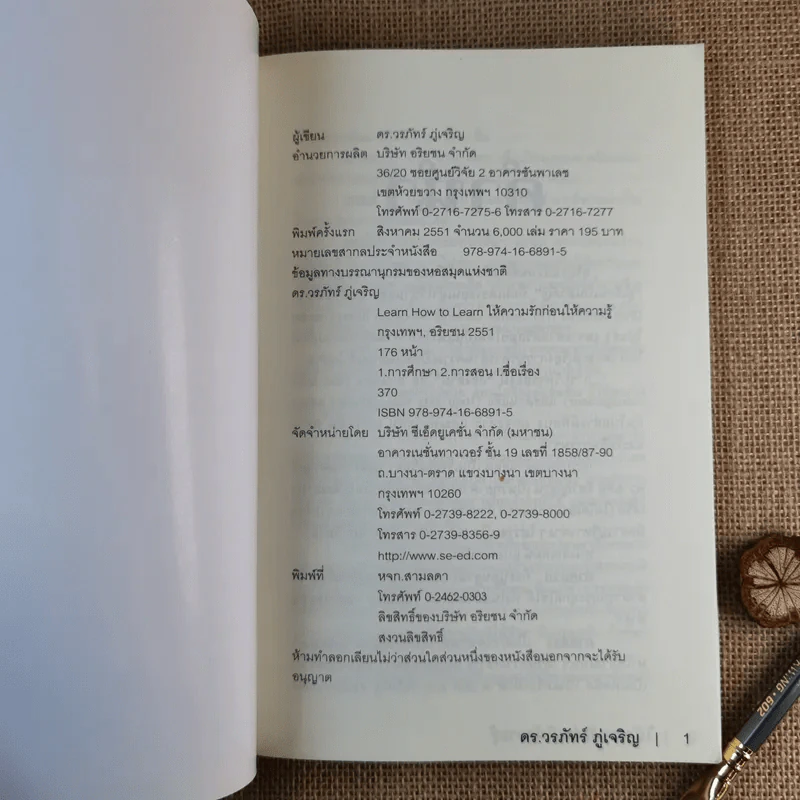 ผู้เขียน ดร.วรภัทร์ ภู่เจริญ
อำนวยการผลิต บริษัท อริยชน จำกัด
36/20 ซอยศูนย์วิจัย 2 อาคารชันพาเลซ
เขตห้วยขวาง กรุงเทพฯ 10310
โทรศัพท์ 0-2716-7275-6 โทรสาร 0-2716-7277
พิมพ์ครั้งแรก สิงหาคม 2551 จำนวน 6,000 เล่ม ราคา 195 บาท
หมายเลขสากลประจำหนังสือ 978-974-16-6891-5
ข้อมูลทางบรรณานุกรมของหอสมุดแห่งชาติ
ดร.วรภัทร์ ภู่เจริญ
Learn How to Learn ให้ความรักก่อนให้ความรู้
กรุงเทพฯ, อริยชน 2551
176 หน้า
1.การศึกษา 2.การสอน I.ชื่อเรื่อง
370
ISBN 978-974-16-6891-5
จัดจำหน่ายโดย บริษัท ซีเอ็ดยูเคชั่น จำกัด (มหาชน)
อาคารเนชั่นทาวเวอร์ ชั้น 19 เลขที่ 1858/87-90
ถ.บางนา-ตราด แขวงบางนา เขตบางนา
กรุงเทพฯ 10260
โทรศัพท์ 0-2739-8222, 0-2739-8000
โทรสาร 0-2739-8356-9
http://www.se-ed.com
พิมพ์ที่ หจก.สามลดา
โทรศัพท์ 0-2462-0303
ลิขสิทธิ์ของบริษัท อริยชน จำกัด
สงวนลิขสิทธิ์
ห้ามทำลอกเลียนไม่ว่าส่วนใดส่วนหนึ่งของหนังสือนอกจากจะได้รับ
อนุญาต
ดร.วรภัทร์ ภู่เจริญ | 1
602